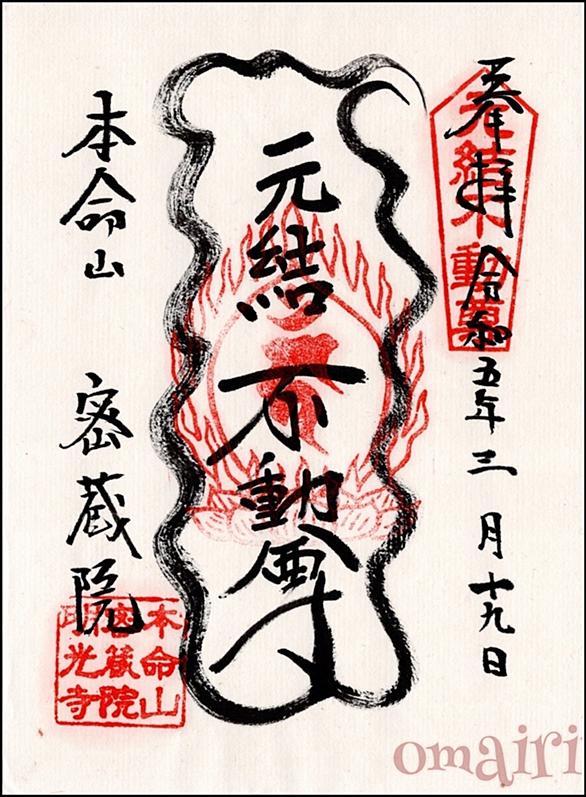 奉拝 令和五年三月十九日
元結不動尊
元結不動尊
本命山
密蔵院
本命山
密蔵院
明光寺
omairi